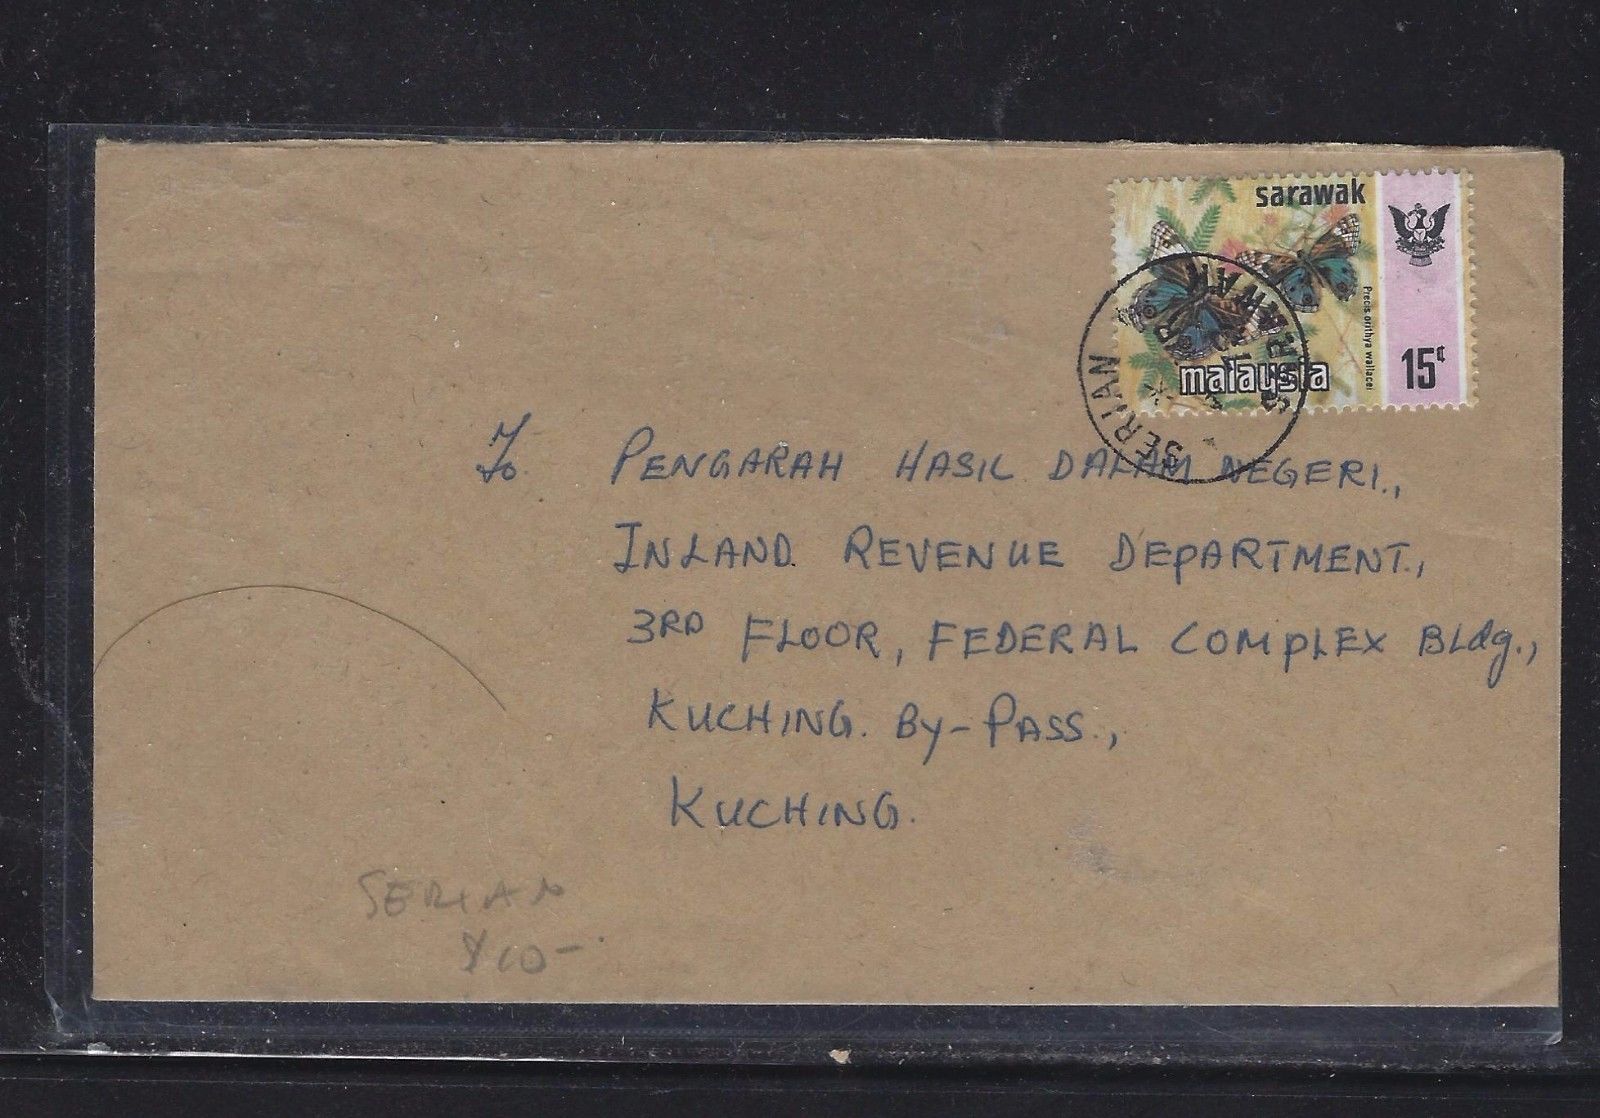 sarawak
Precis orithya wallacei
malaysia
15¢
SERIAN
SARAWAK
To. PENGARAH HASIL DALAM NEGERI.,
INLAND REVENUE DEPARTMENT.,
3RD FLOOR, FEDERAL COMPLEX BLdg.,
KUCHING. By-PASS.,
KUCHING.
SERIAN
$10-